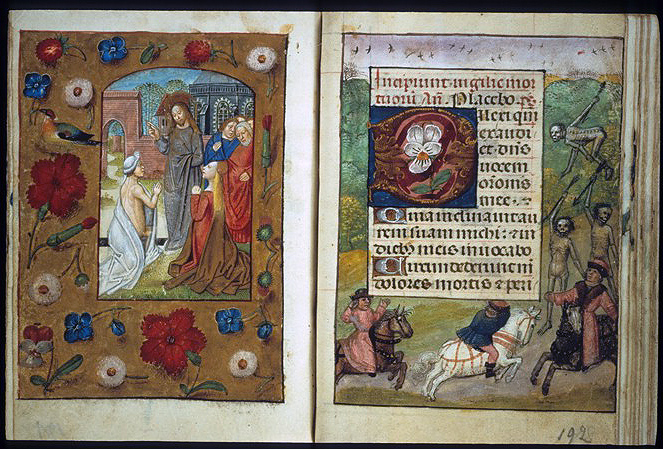 Incipiunt vigilie mor
tuorū Añ. Placebo. ps
Dilexi qm
exaudi
et dns
vocem
orōnis
mee
Quia inclinavit au
rem suam michi: et in
dieb meis invocabo
Circumdederunt me
dolores mortis et peri
192